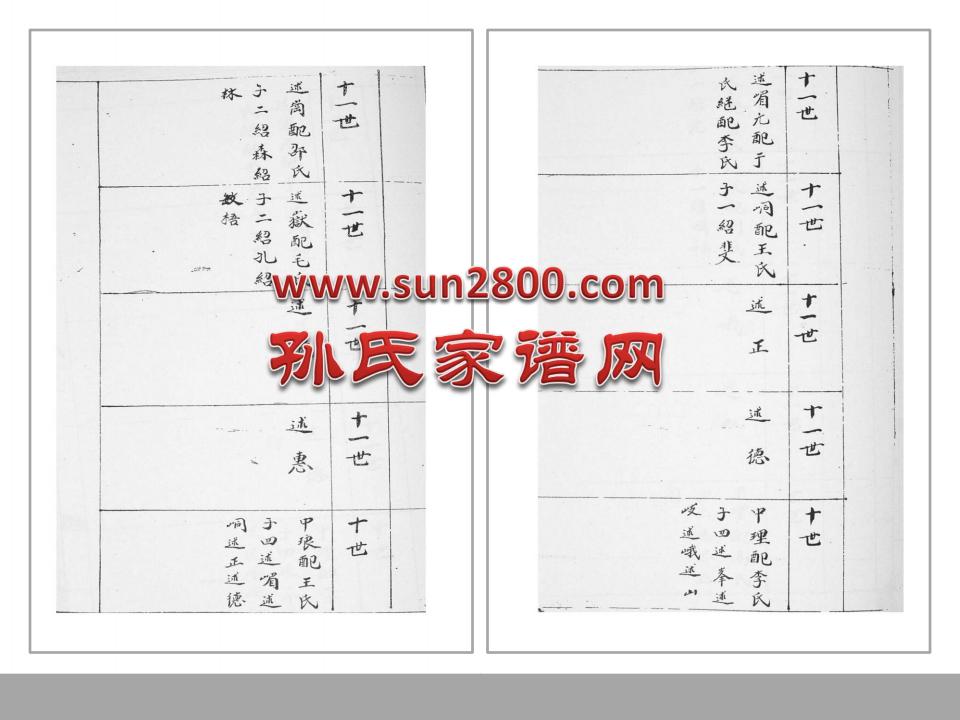 十一世
述嵋尢配于
氏継配李氏
十一世
述峒配王氏
子一紹斐
十一世
述正
十一世
述德
十世
甲理配李氏
子四述峯述
岐述峨述山
十一世
述崗配邵氏
子二紹森紹
林
十一世
述嶽配毛氏
子二紹孔紹
敏梧
十一世
述
十一世
述惠
十世
甲琅配王氏
子四述嵋述
峒述正述德
www.sun2800.com
孙氏家谱网